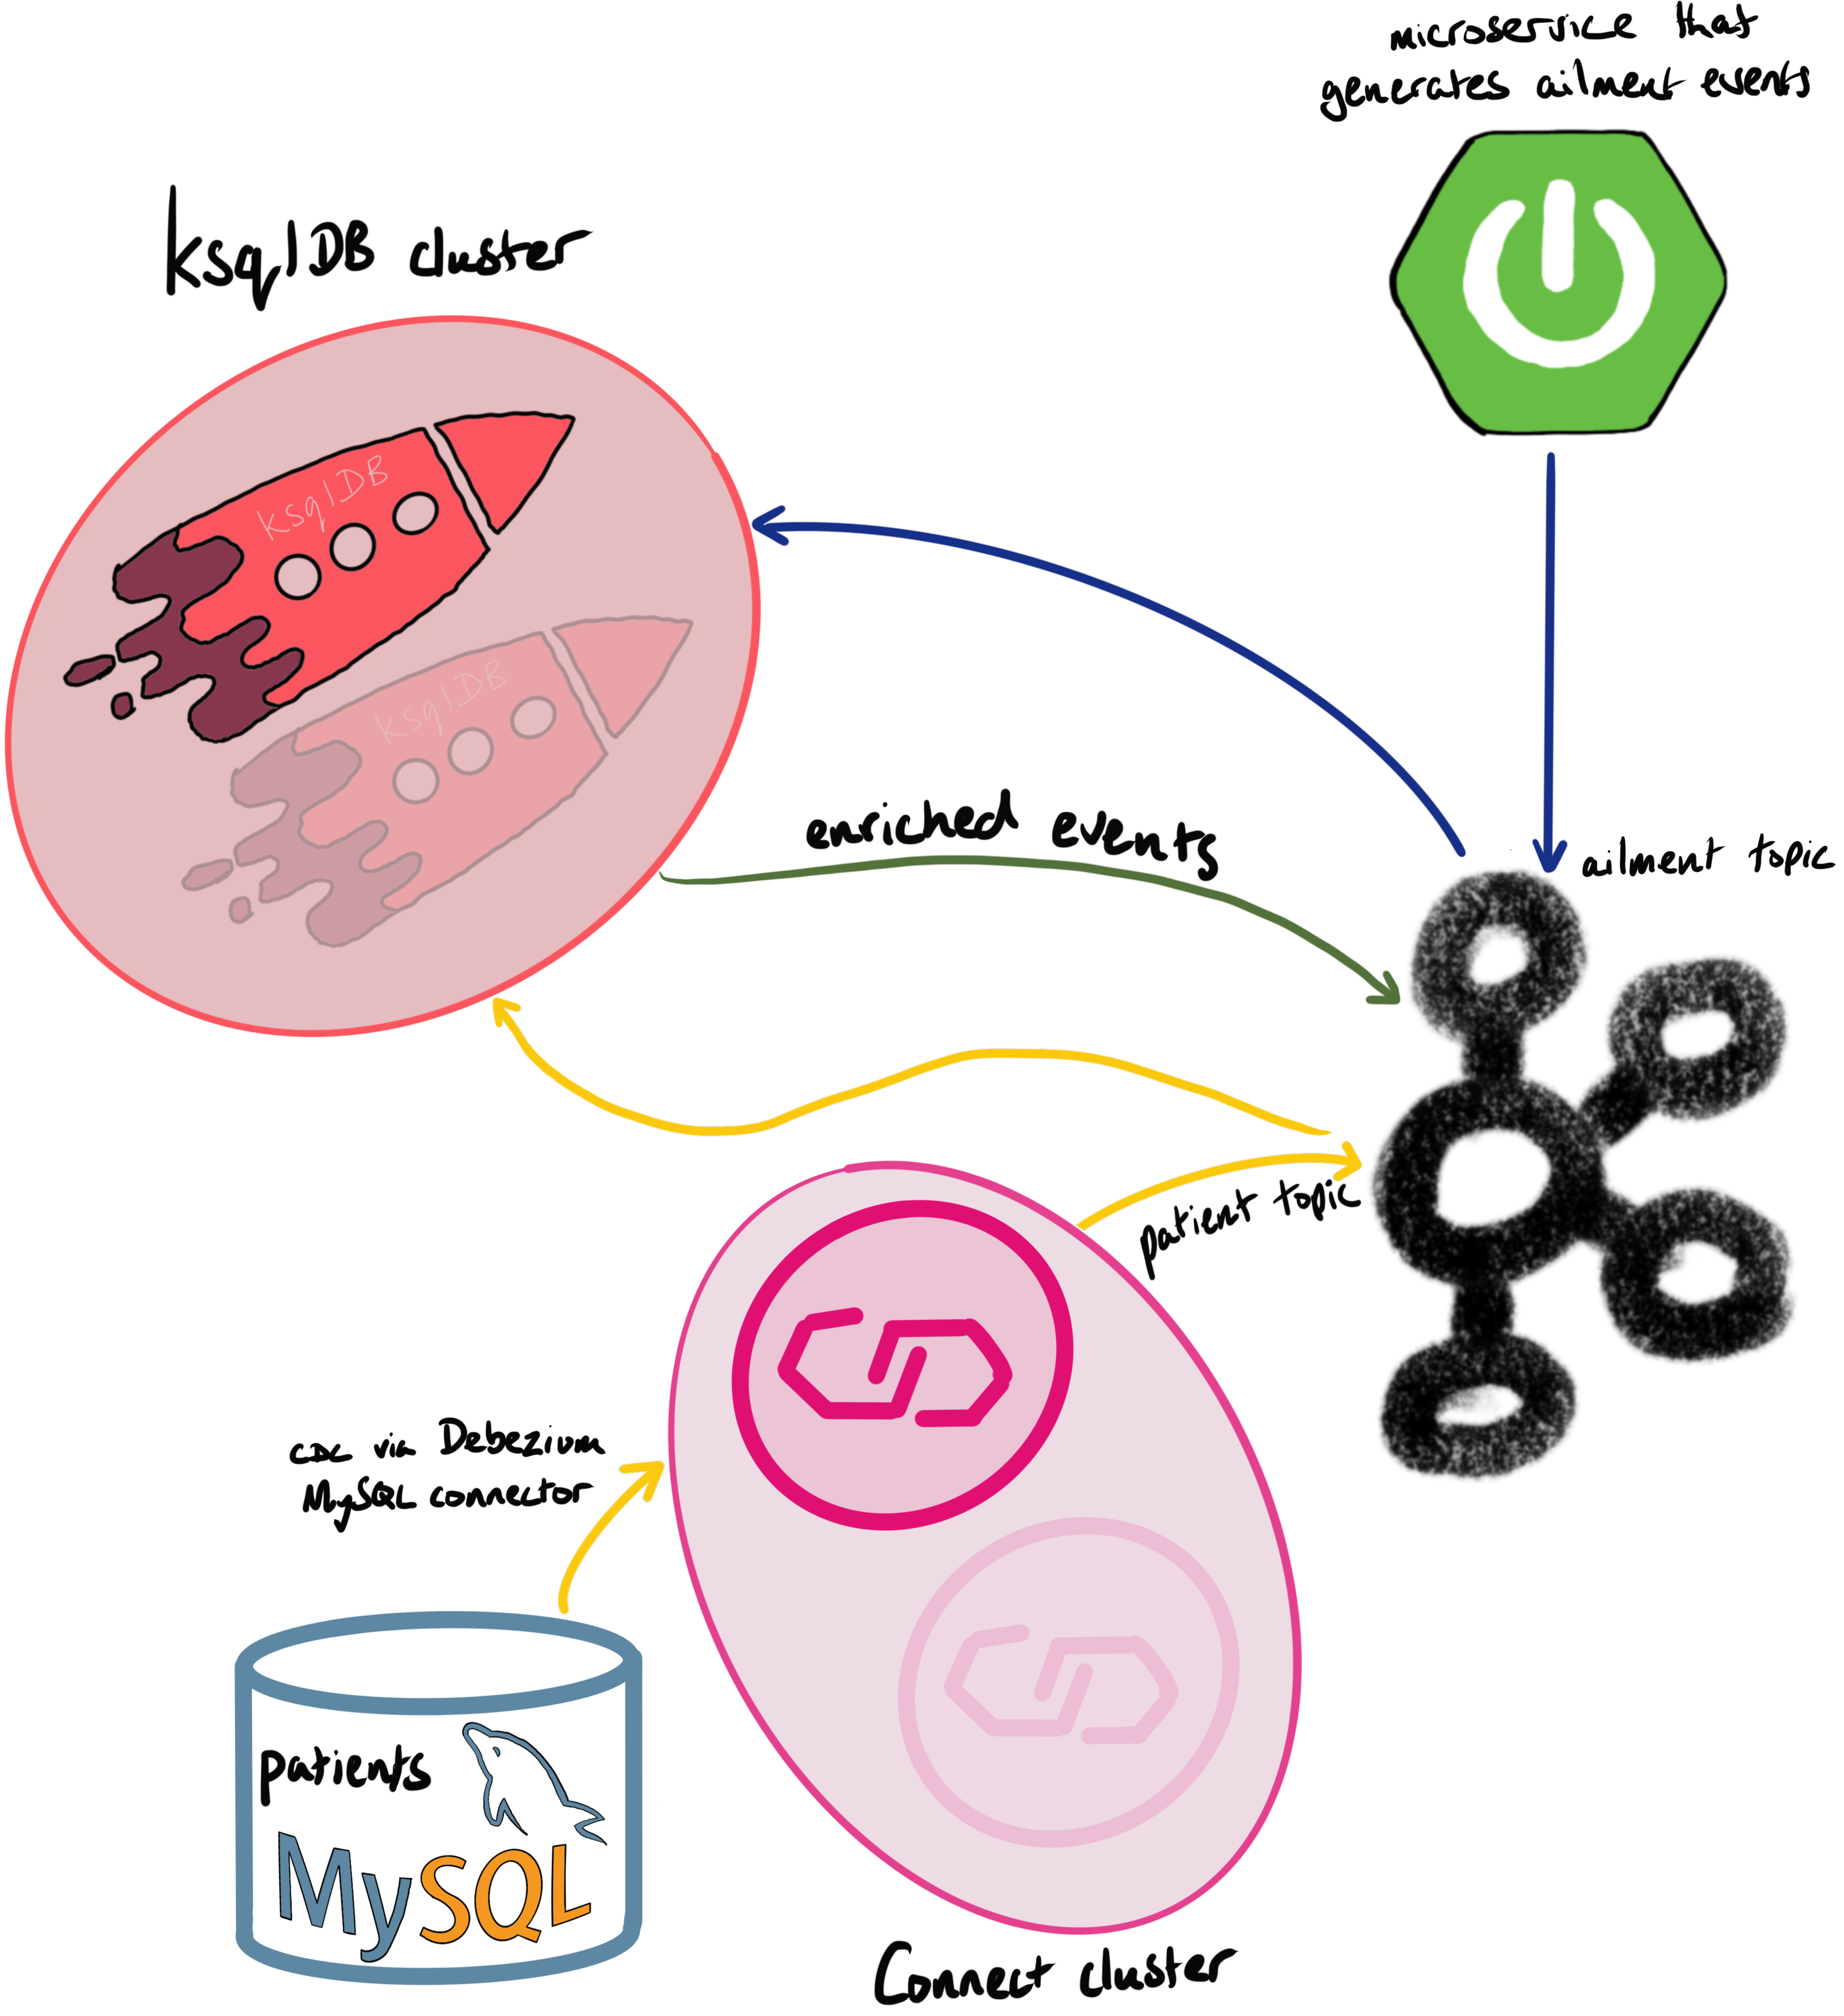 microservice that
generates ailment events
ksqlDB cluster
ksqlDB
ksqlDB
enriched events
ailment topic
patient topic
CDC via Debezium
MySQL connector
patients
MySQL
Connect cluster